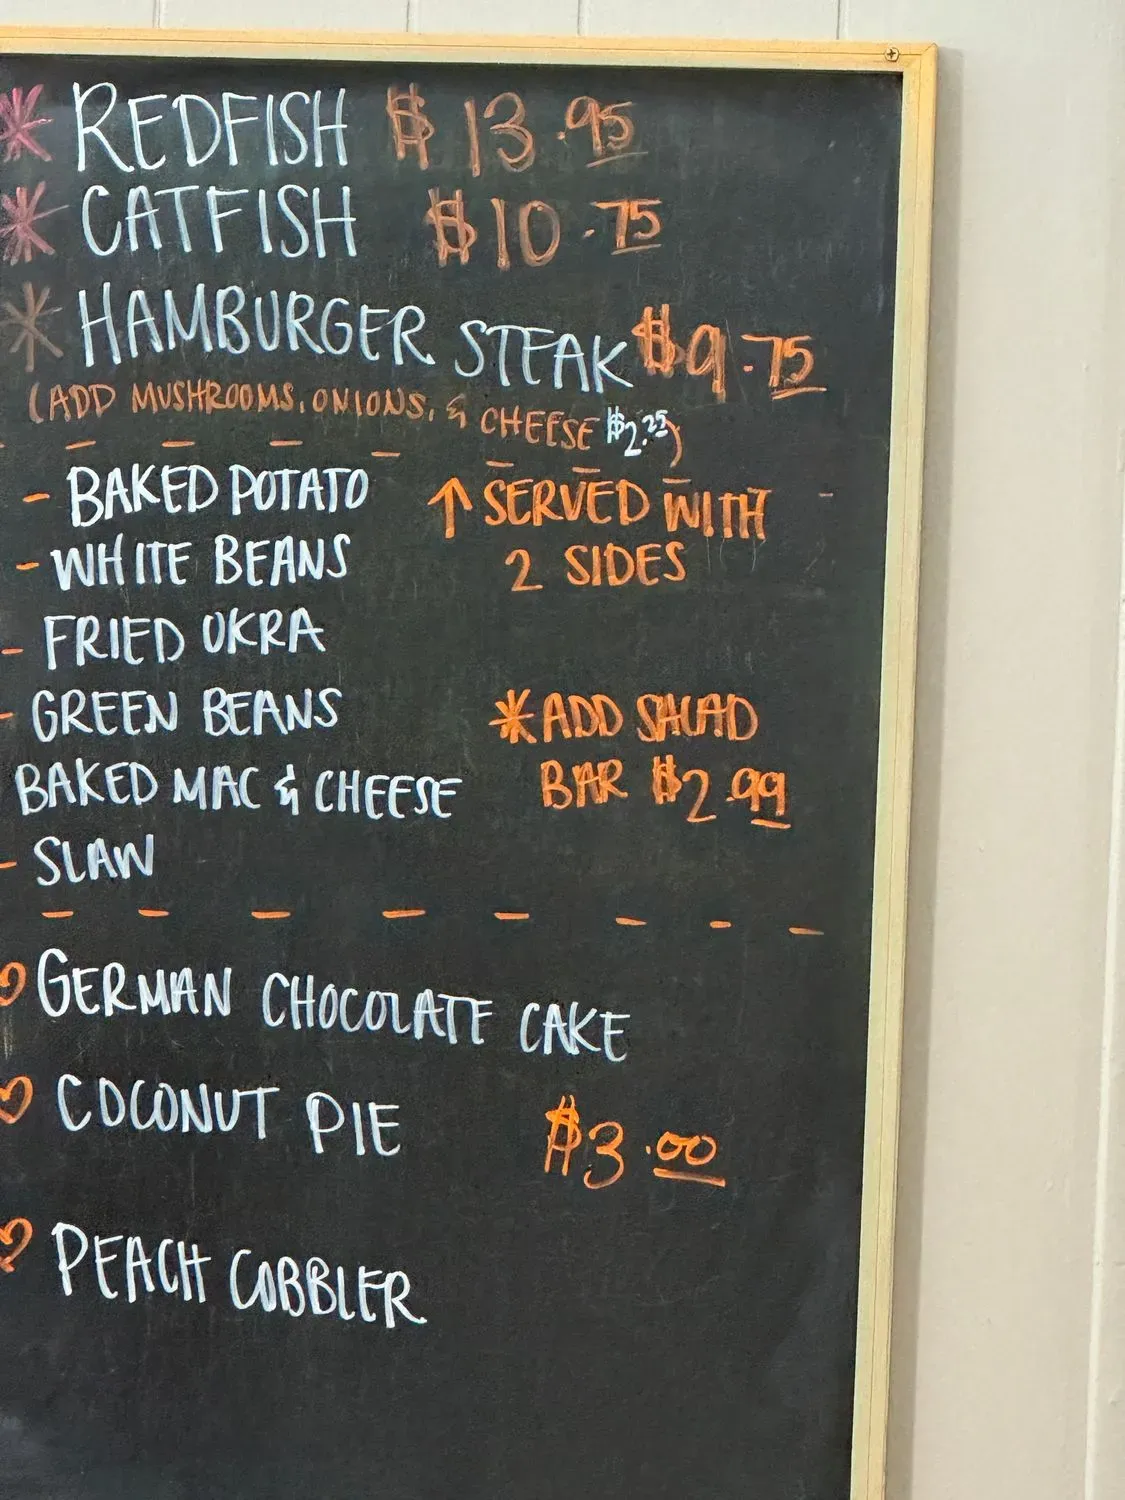 * REDFISH $13.95
* CATFISH $10.75
* HAMBURGER STEAK $9.75
(ADD MUSHROOMS, ONIONS, & CHEESE $2.25)
- BAKED POTATO
↑ SERVED WITH
2 SIDES
- WHITE BEANS
- FRIED OKRA
- GREEN BEANS
BAKED MAC & CHEESE
- SLAW
* ADD SALAD
BAR $2.99
GERMAN CHOCOLATE CAKE
COCONUT PIE
$3.00
PEACH COBBLER